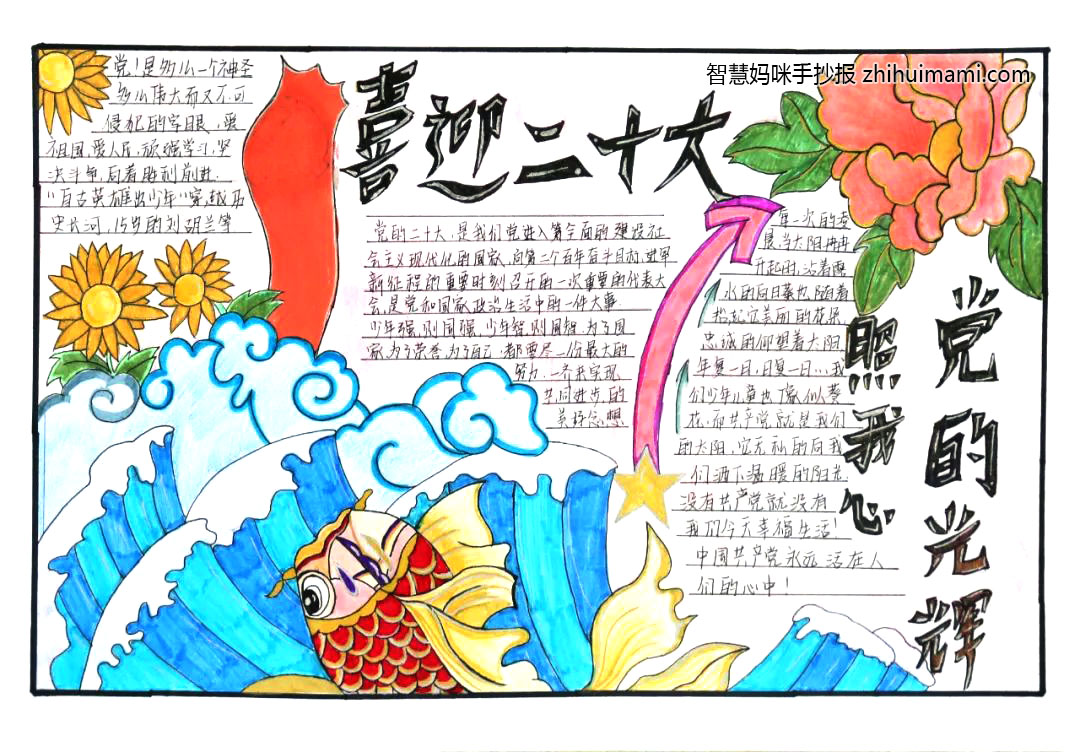 智慧妈咪手抄报 zhihuimami.com
喜迎二十大
党的光辉
照我心
党！是多么一个神圣
多么伟大而又不可
侵犯的字眼，爱
祖国，爱人民，顽强学习，坚
决斗争，向着胜利前进．
"自古英雄出少年"穿越历
史长河，15岁的刘胡兰等
党的二十大，是我们党进入第全面的建设社
会主义现代化的国家，向第二个百年奋斗目标，进军
新征程的重要时刻召开的一次重要的代表大
会，是党和国家政治生活中的一件大事．
少年强，则国强，少年智，则国智，为了国
家，为了荣誉，为了自己，都要尽一份最大的
努力．一齐来实现
共同进步，的
美好念想
每一次的
晨，当太阳冉冉
升起时，沾着
水的向日葵也随着
抬起它美丽的花朵，
忠诚的仰望着太阳．
年复一日，日复一日...我
们少年儿童也了像似葵
花，而共产党就是我们
的太阳，它无私的向我
们洒下温暖的阳光．
没有共产党就没有
我们今天幸福生活！
中国共产党永远活在人
们的心中！